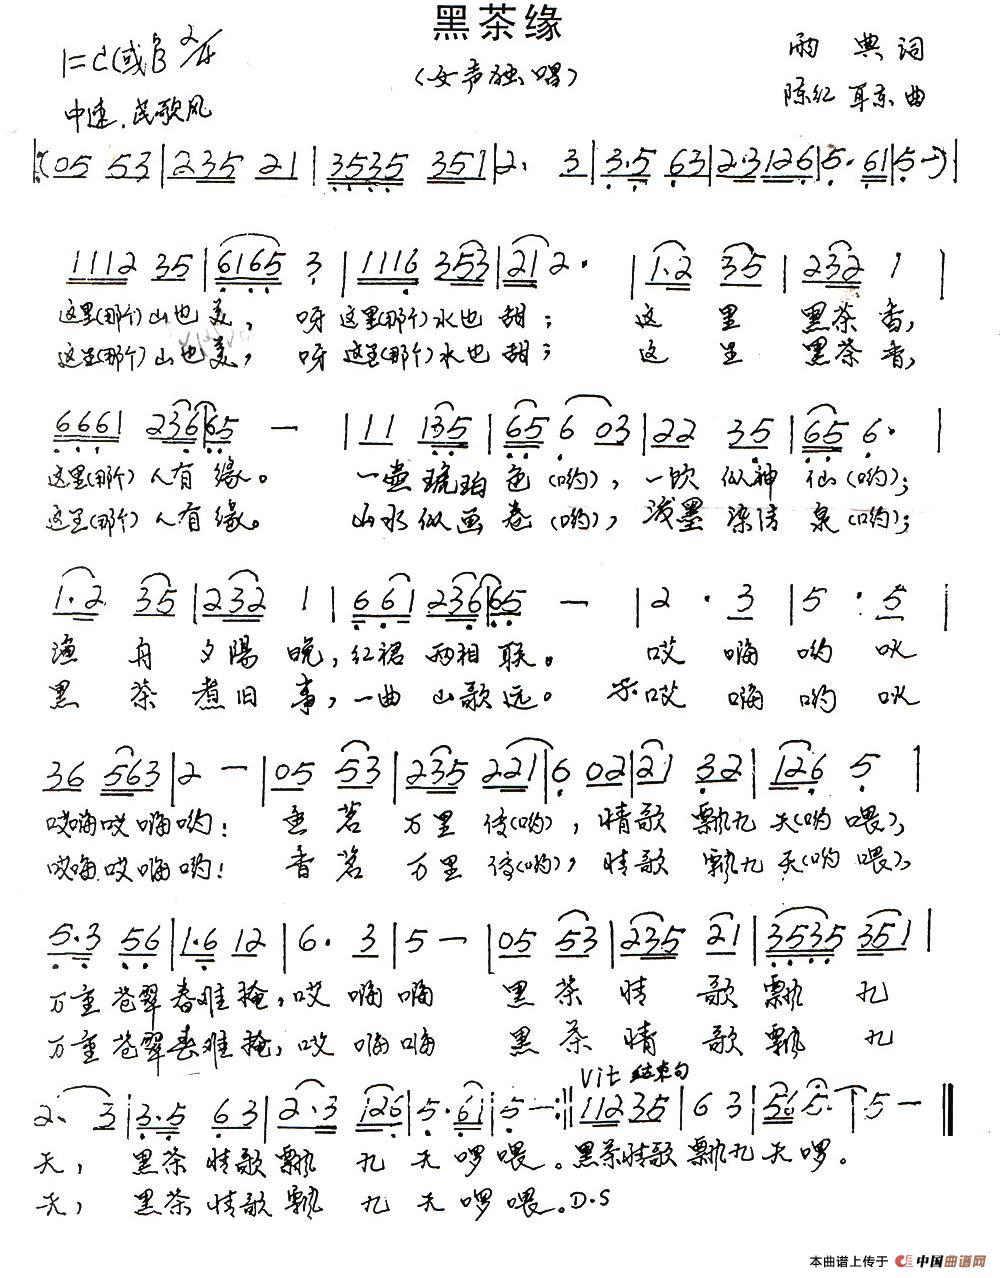 黑茶缘
1=C(或♭B 2/4
(女声独唱)
雨典词
中速.民歌风
陈红 耳东曲
(05 53|235 21|3535 351|2. 3|3.5 63|2.3126|5.61|5-)|
1112 35|6165 3|1116 353|21 2.|1.2 35|232 1|
这里(那个)山也美,呀这里(那个)水也甜;这里黑茶香,
这里(那个)山也美,呀这里(那个)水也甜;这里黑茶香,
6661 236|65 -|11 135|65 6 03|22 35|65 6.|
这里(那个)人有缘。一壶琥珀色(哟),一饮似神仙(哟);
这里(那个)人有缘。山水似画卷(哟),浅墨染清泉(哟);
1.2 35|232 1|661 236|65 -|2. 3|5. 5|
渔舟夕陽晚,红裙两相联。哎嗨哟吙
黑茶煮旧事,一曲山歌远。哎嗨哟吙
36 563|2 -|05 53|235 221|6 02|21 32|126 5|
哎嗨哎嗨哟!香茗万里传(哟),情歌飘九天(哟喂),
哎嗨哎嗨哟!香茗万里传(哟),情歌飘九天(哟喂),
5.3 56|1.6 12|6. 3|5 -|05 53|235 21|3535 351|
万重苍翠春难掩,哎嗨嗨黑茶情歌飘九
万重苍翠春难掩,哎嗨嗨黑茶情歌飘九
Vit 结束句
2. 3|3.5 63|2.3 126|5.61|5-:||112 35|63|56 5.|5-||
天,黑茶情歌飘九天啰喂。黑茶情歌飘九天啰。
天,黑茶情歌飘九天啰喂。D.S
本曲谱上传于 中国曲谱网